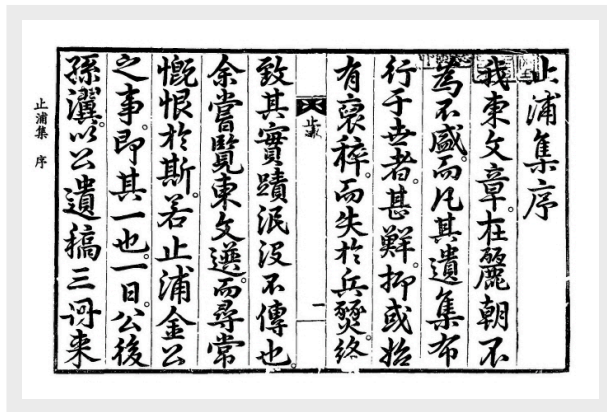 止浦集序
我東文章。在麗朝不
為不盛。而凡其遺集布
行于世者。甚鮮。抑或始
有裒稡。而失於兵燹。終
致其實蹟泯沒不傳也。
余嘗覽東文選。而尋常
慨恨於斯。若止浦金公
之事。即其一也。一日。公後
孫以公遺稿三冊来
止浦集 序